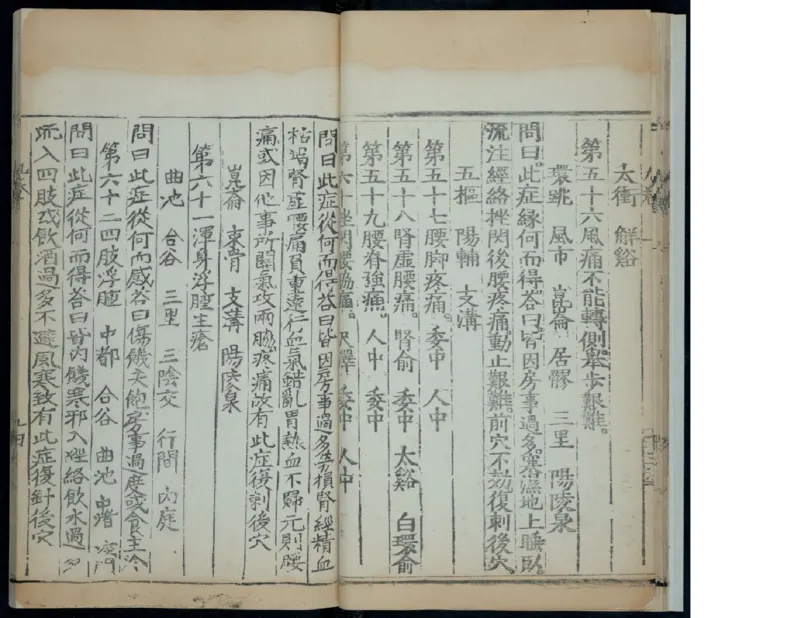 太衝 解谿
第五十六風痛不能轉側舉步艱難。
環跳 風市 崑崙 居髎 三里 陽陵泉
問曰。此症緣何而得。答曰。皆因房事過多。寒濕地上睡臥。
流注經絡挫閃後腰疼痛。動止艱難。前穴不効復刺後穴。
五樞 陽輔 支溝
第五十七腰脚疼痛。委中 人中。
第五十八腎虛腰痛。腎俞 委中 太谿 白環俞
第五十九腰脊強痛。人中 委中
第六十挫閃腰脇痛。尺澤 委中 人中
問曰此症從何而得答曰皆因房事過多勞損腎經精血
枯竭腎虛腰痛負重遠行血氣錯亂胃熱血不歸元則腰
痛或因他事所關氣攻兩脇疼痛故有此症復刺後穴
崑崙 束骨 支溝 陽陵泉
第六十一渾身浮腫生瘡
曲池 合谷 三里 三陰交 行間 內庭
問曰此症從何而感答曰傷饑失飽房事過度或食生冷
第六十二四肢浮腫 中都 合谷 曲池 中渚
問曰此症從何而得答曰皆因饑寒邪入經絡飲水過多
流入四肢或飲酒過多不避風寒致有此症復針後穴